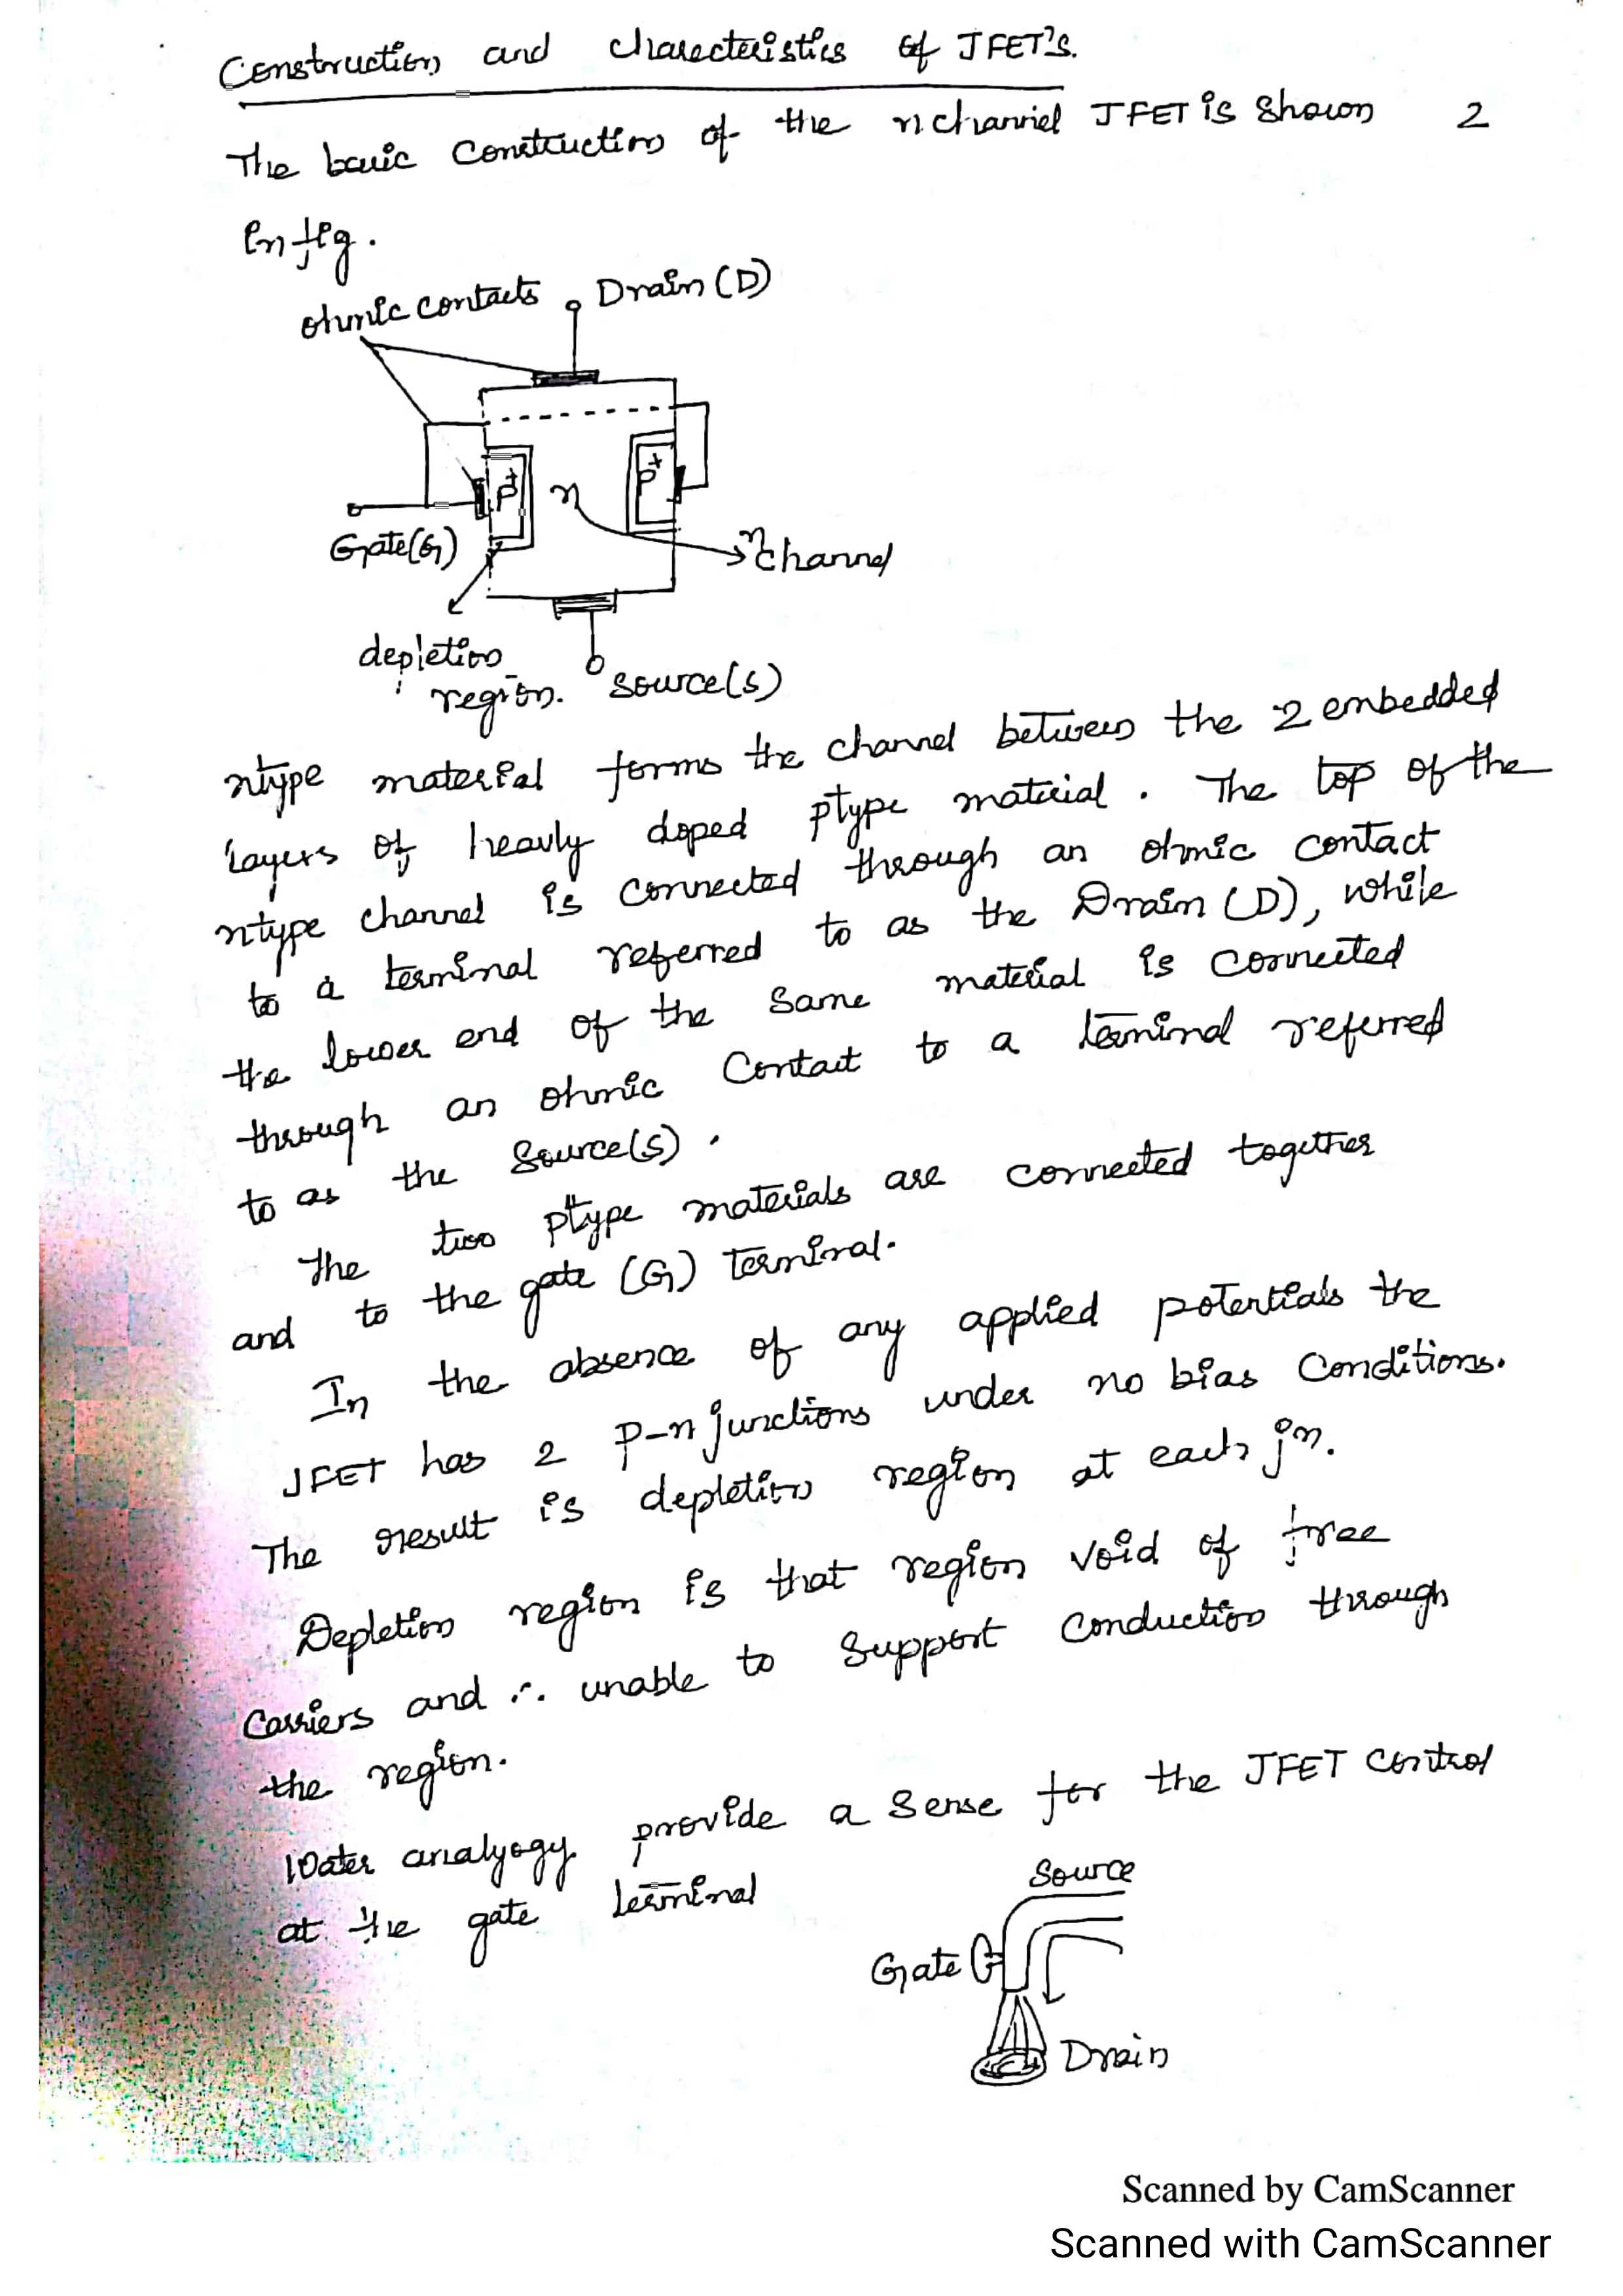 Construction and charecteristics of JFET's.
The basic Construction of the n channel JFET is shown 2
in fig.
ohmic contacts Drain (D)
P+ n P+
Gate(G)
n channel
depletion
region. Source(s)
ntype material forms the channel between the 2 embedded
layers of heavly doped ptype material. The top of the
ntype channel is connected through an ohmic contact
to a terminal referred to as the Drain (D), while
the lower end of the same material is connected
through an ohmic Contact to a terminal referred
to as the Source(s).
The two ptype materials are connected together
and to the gate (G) Terminal.
In the absence of any applied potentials the
JFET has 2 p-n junctions under no bias Conditions.
The result is depletion region at each jn.
Depletion region is that region void of free
Carriers and ∴ unable to Support Conduction through
the region.
Water analyogy provide a Sense for the JFET Control
at the gate terminal
Source
Gate
Drain
Scanned by CamScanner
Scanned with CamScanner